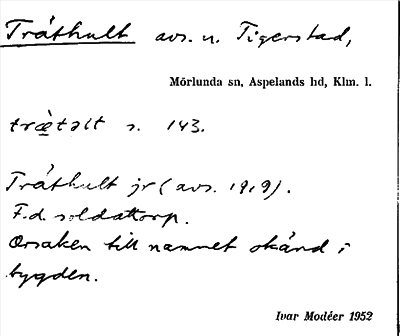 Tråthult avs. u. Tigerstad,
Mörlunda sn, Aspelands hd, Klm. l.
træ̀təlt s. 143.
Tråthult jr (avs. 1919).
F.d. soldattorp.
Orsaken till namnet okänd i
bygden.
Ivar Modéer 1952